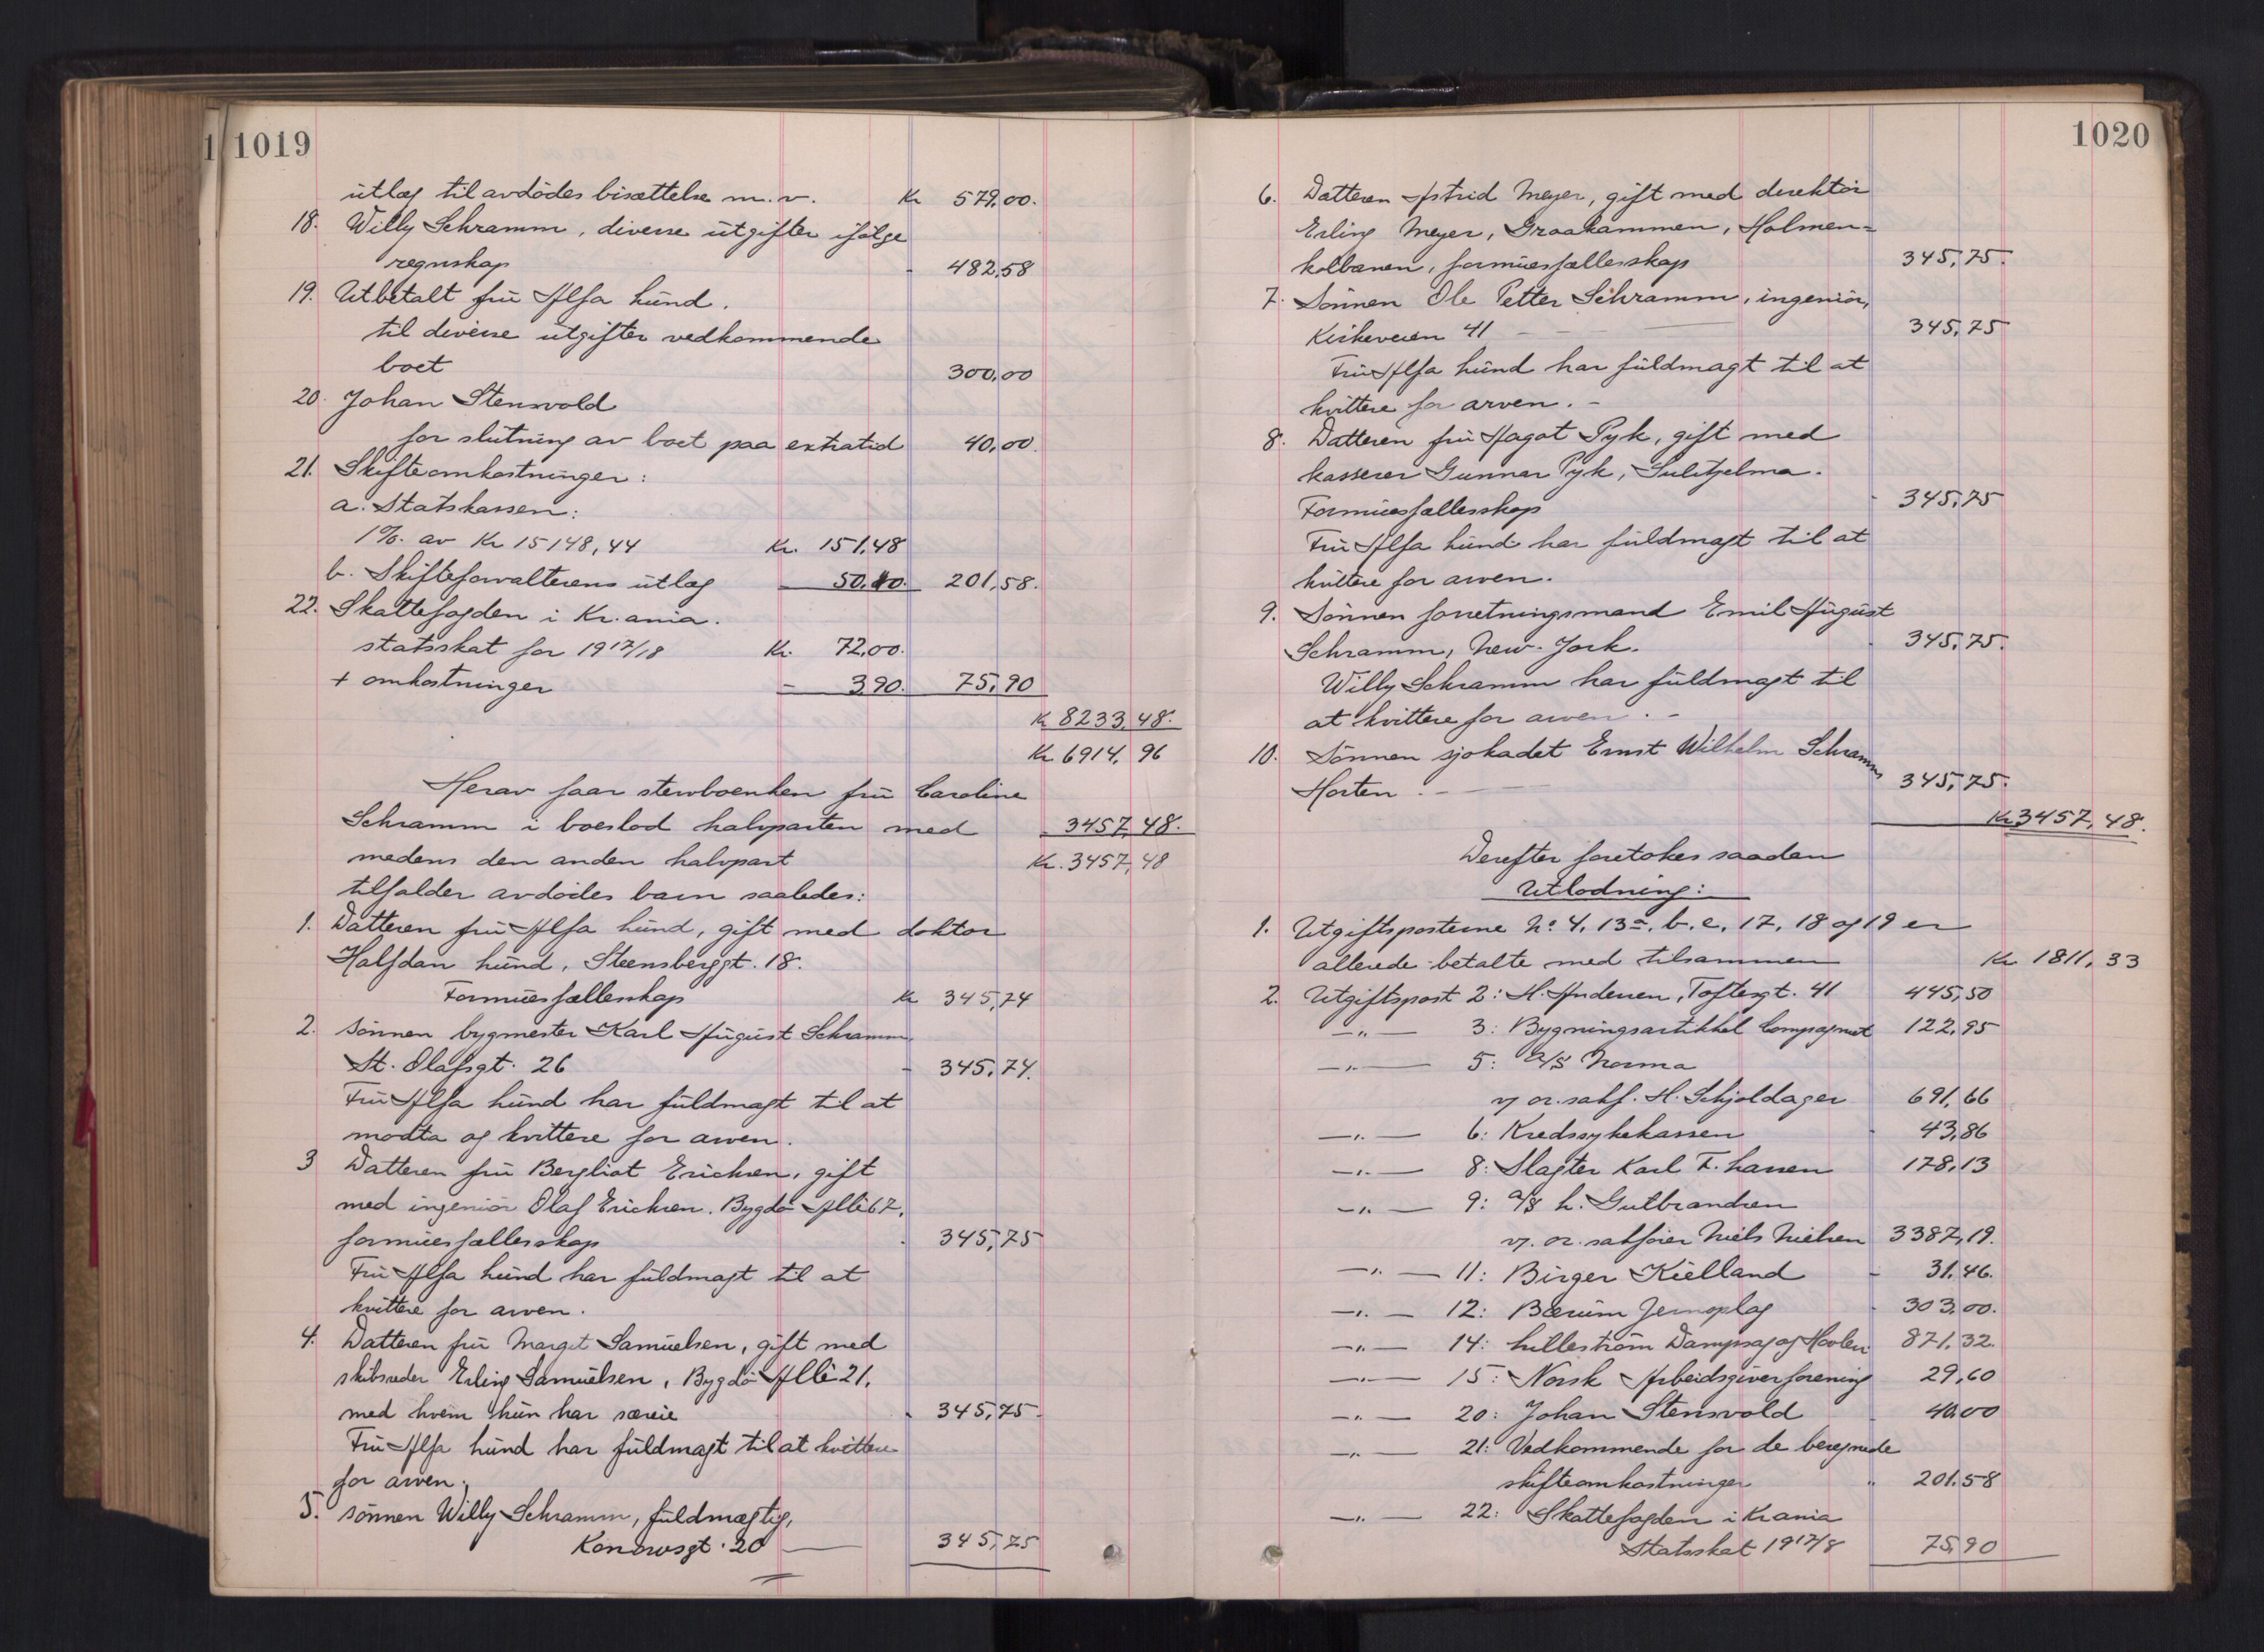 1019
utlæg til avdödes bisættelse m.v. Kr 579,00.
18. Willy Schramm, diverse utgifter ifölge
regnskap - 482,58
19. Utbetalt fru Alfa Lund.
til diverse utgifter vedkommende
boet 300,00
20. Johan Stensvold
for slutning av boet paa extratid 40,00.
21. Skifteomkostninger:
a. Statskassen:
1%. av Kr 15148,44 Kr. 151,48
b. Skifteforvalterens utlæg 50.10. 201,58.
22. Skattefogden i Kr.ania.
statsskat for 1917/18 Kr. 72,00.
+ omkostninger - 3.90. 75,90
Kr 8233,48.
Kr 6914,96
Herav faar stervboenken fru Caroline
Schramm i boeslod halvparten med 3457,48.
medens den anden halvpart Kr. 3457,48
tilfalder avdödes barn saaledes:
1. Datteren fru Alfa Lund, gift med doktor
Halfdan Lund, Steensberggt. 18.
Formuesfællesskap Kr 345,74
2. Sönnen bygmester Karl August Schramm,
St. Olafsgt. 26 - 345,74.
Fru Alfa Lund har fuldmagt til at
modta og kvittere for arven.
3 Datteren fru Bergliot Erichsen, gift
med ingeniör Olaf Erichsen. Bygdö Allé 67,
formuesfællesskap - 345,75
Fru Alfa Lund har fuldmagt til at
kvittere for arven.
4. Datteren fru Margit Samuelsen, gift med
skibsreder Erling Samuelsen, Bygdö Allé 21,
med hvem hun har særeie - 345,75.
Fru Alfa Lund har fuldmagt til at kvittere
for arven.
5. Sönnen Willy Schramm, fuldmægtig,
Konowsgt. 20 — 345,75
1020
6. Datteren Astrid Meyer, gift med direktör
Erling Meyer, Graakammen, Holmen=
kolbanen, formuesfællesskap 345,75.
7. Sönnen Ole Petter Schramm, ingeniör,
Kirkeveien 41 - — 345,75
Fru Alfa Lund har fuldmagt til at
kvittere for arven. -
8. Datteren fru Aagot Pyk, gift med
kasserer Gunnar Pyk, Sulitjelma.
Formuesfællesskap - 345,75
Fru Alfa Lund har fuldmagt til at
kvittere for arven.
9. Sönnen forretningsmand Emil August
Schramm, New-York. - 345,75.
Willy Schramm har fuldmagt til
at kvittere for arven. -
10. Sönnen sjökadet Ernst Wilhelm Schramm
Horten. — 345,75.
Kr 3457,48.
Derefter foretokes saadan
Utlodning:
1. Utgiftsposterne No 4, 13a, b. c, 17, 18 og 19 er
allerede betalte med tilsammen Kr 1811,33
2. Utgiftspost 2: H. Andersen, Toftesgt. 41 445,50
—"— 3: Bygningsartikkel Compagniet 122,95
—"— 5: A/S Norma
v/ or. sakf. H. Schjoldager 691,66
—"— 6: Kredssykekassen - 43,86
—"— 8: Slagter Karl F. Larsen 178,13
—"— 9: A/S L. Gulbrandsen
v/. or. sakförer Niels Nielsen 3387,19.
—"— 11: Birger Kielland - 31,46.
—"— 12: Bærum Jernoplag - 303,00.
—"— 14: Lilleström Dampsag og Høvleri 871,32.
—"— 15: Norsk Arbeidsgiverforening 29,60
—"— 20: Johan Stensvold - 40,00
—"— 21: Vedkommende for de beregnede
skifteomkostninger " 201,58
—"— 22: Skattefogden i Krania
Statsskat 1917/8 75,90